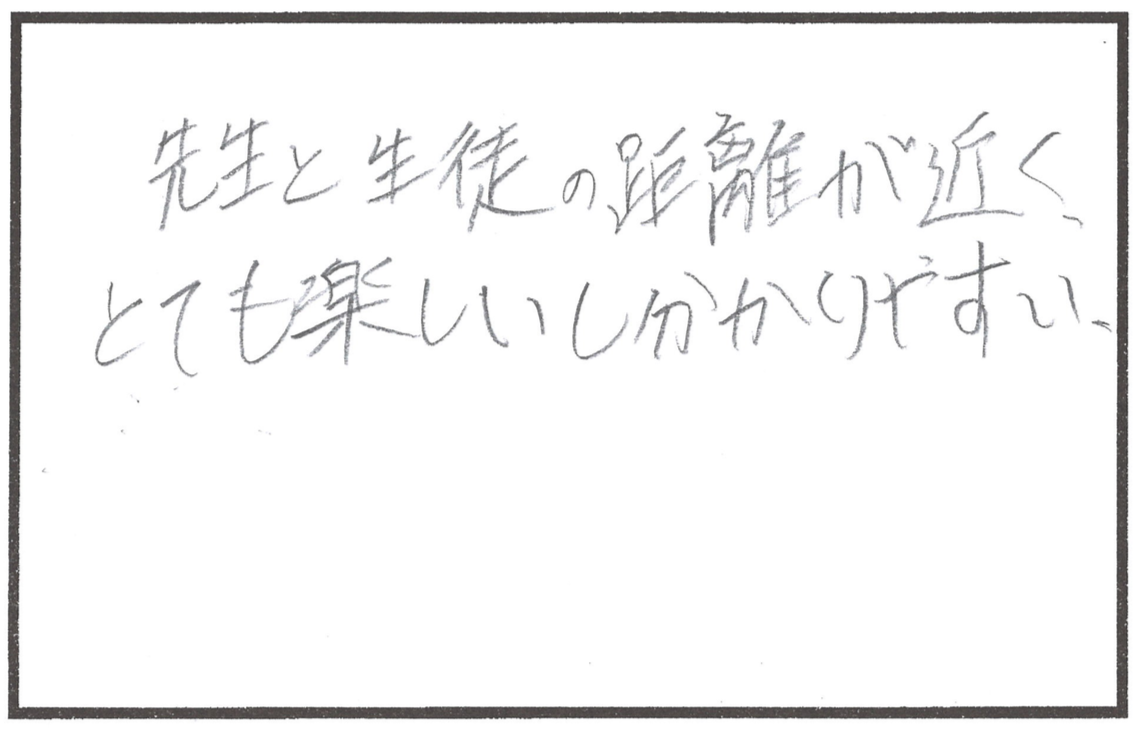 先生と生徒の距離が近く、
とても楽しいし分かりやすい、